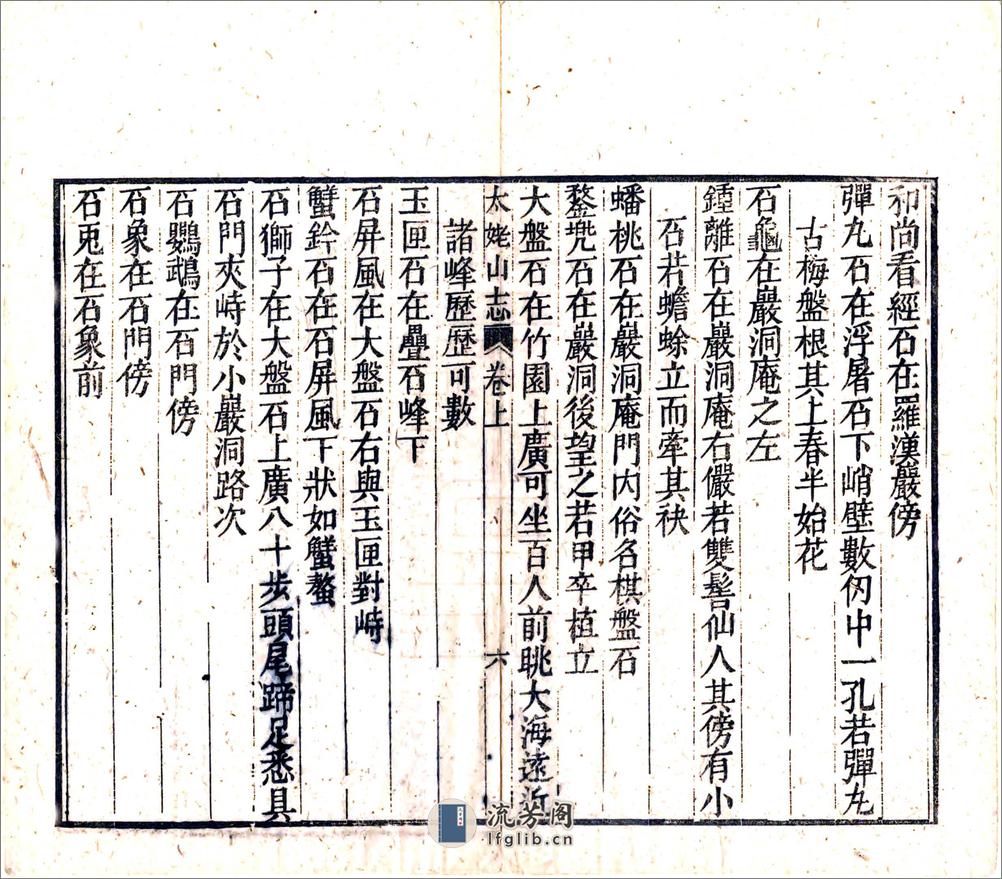 和尚看經石在羅漢巖傍
彈丸石在浮屠石下峭壁數仞中一孔若彈丸
古梅盤根其上春半始花
石龜在巖洞庵之左
鍾離石在巖洞庵右儼若雙髻仙人其傍有小
石若蟾蜍立而牽其袂
蟠桃石在巖洞庵門內俗名棋盤石
鍪兠石在巖洞後望之若甲卒植立
大盤石在竹園上廣可坐百人前眺大海遠近
太姥山志 卷上 六
諸峰歷歷可數
玉匣石在疊石峰下
石屏風在大盤石右與玉匣對峙
蟹鈐石在石屏風下狀如蟹螯
石獅子在大盤石上廣八十步頭尾蹄足悉具
石門夾峙於小巖洞路次
石鸚鵡在石門傍
石象在石門傍
石兎在石象前
流芳阁
lfglib.cn